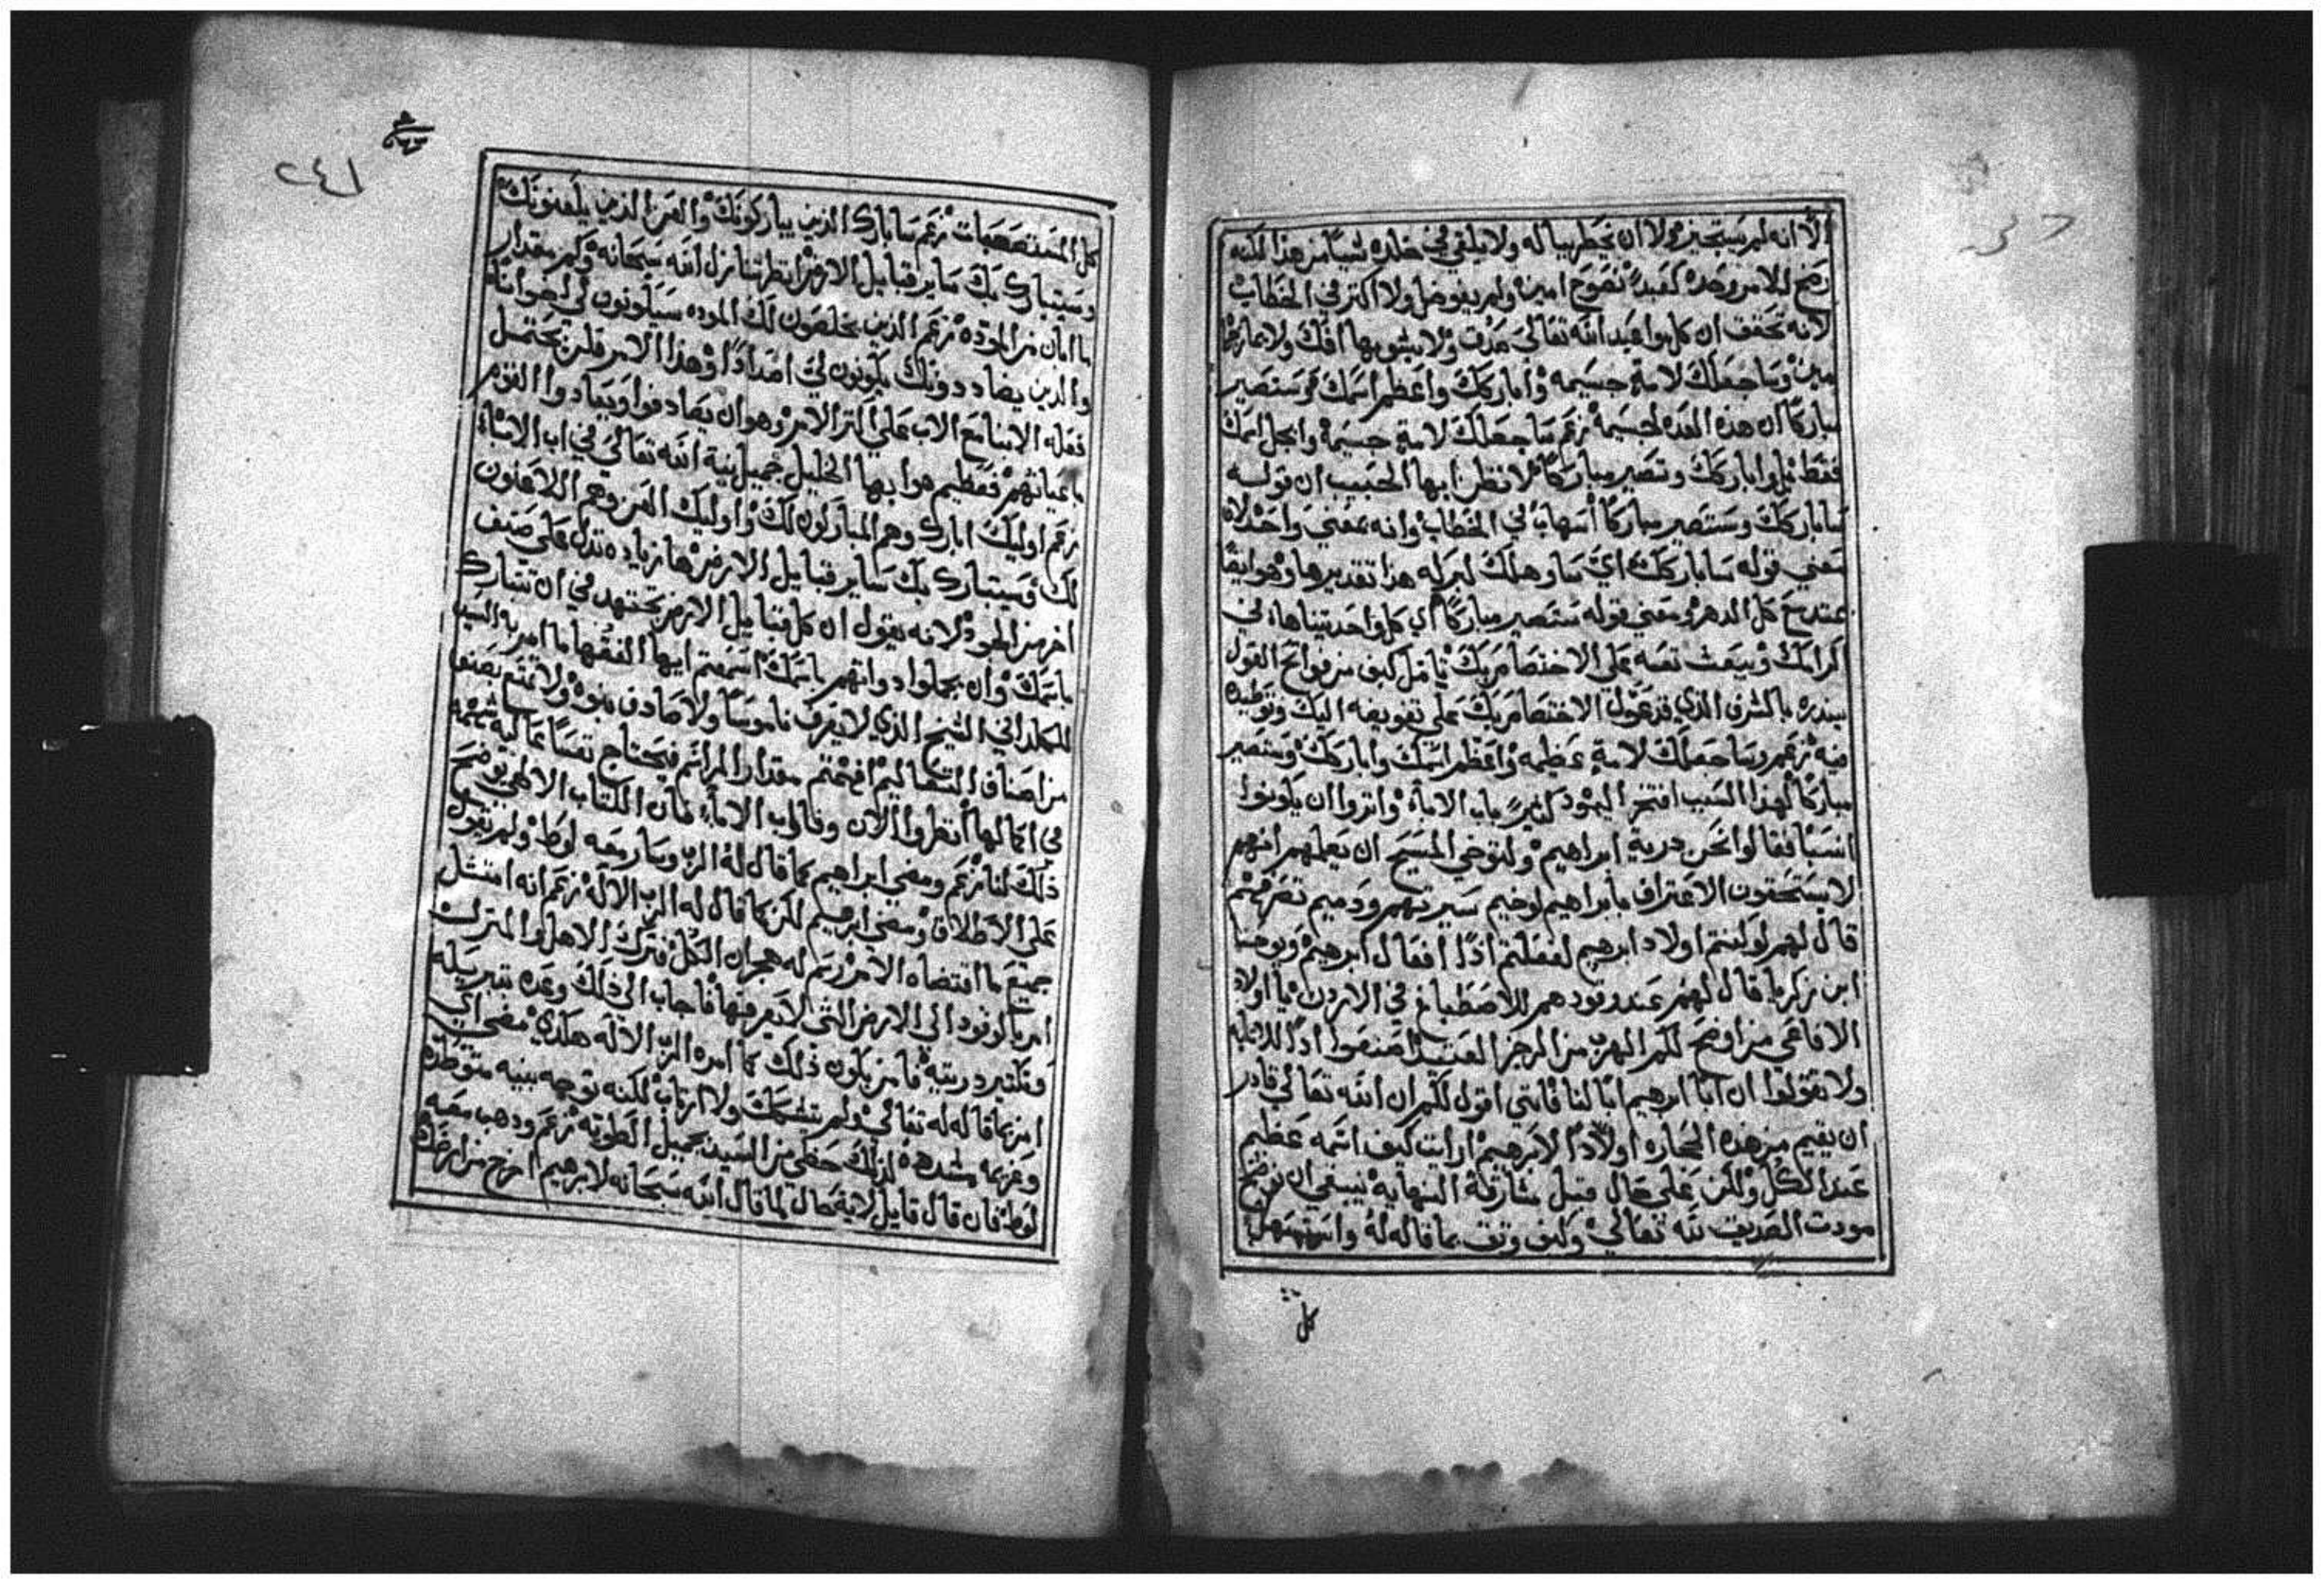 الا انه لم يستجيز ولا ان يخطر بباله ولا يلقي في خلده شيا من هذا لكنه
رضخ للامر وحده كعبد نصوح امين ولم يفوض ولا اكتر في الخطاب
لانه تحقق ان كل مواعيد الله تعالي صدق ولا يشوبها افك ولا
مين وساجعلك لامةٍ جسيمه واباركك واعظم اسمك وستصير
مباركًا ان هذه العده لجسيمة زعم ساجعلك لامةٍ جسيمة وابجل اسمك
فقط بل واباركك وتصير مباركًا فلا تظن ايها الحبيب ان قوله
ساباركك وستصير مباركًا اسهاب في الخطاب وانه بمعني واحد لان
معني قوله ساباركك اي ساوهلك لبركه هذا تقديرها وهو ايضًا
يمتد مع كل الدهر ومعني قوله ستصير مباركًا اي كل واحد يتناها في
اكرامك ويبعث نفسه علي الاختصاص بك تامل كيف من فواتح القول
ينذره بالشرف الذي قد عول الاختصاص بك علي تفويضه اليك وتوطيده
فيه زعم وساجعلك لامةٍ عظيمه واعظم اسمك واباركك وستصير
مباركًا لهذا السبب افتخر اليهود كثيرًا باب الاباء واثروا ان يكونوا
انسبا فقالوا نحن درية ابراهيم ولتوخي المسيح ان يعلمهم انهم
لا يستحقون الاعتراف بابراهيم لوخيم سيرتهم ودميم تصرفهم
قال لهم لو كنتم اولاد ابرهيم لفعلتم اذًا افعال ابرهيم ويوحنا
ابن زكريا قال لهم عند وفودهم للاصطباغ في الاردن يا اولاد
الافاعي من اوضح لكم الهرب من الرجز العتيد اصنعوا اذًا
ولا تقولوا ان ابا ابرهيم ابًا لنا فانني اقول لكم ان الله تعالي قادر
ان يقيم من هذه الحجاره اولادًا لابرهيم ارايت كيف اسمه عظيم
عند الكل ولكن علي حال قبل مشارفة النهايه ينبغي ان نوضح
مودت الصديق لله تعالي وكيف وثق بما قاله له واستسهل
كل
٢٤١
كل المستصعبات زعم سابارك الذين يباركونك والعن الذين يلعنونك
وسيتبارك بك ساير قبايل الارض انظر تنازل الله سبحانه وكم مقدار
ما ابان من المودة زعم الذين يخلصون لك الموده سيكونون لي اخوانًا
والذين يضاددونك يكونون لي اضدادًا وهذا الامر فلن يحتمل
فعله الابنا مع الاب علي اكثر الامر وهو ان يصادقوا ويعادوا القوم
باعيانهم فعظيم هو ايها الخليل جميل نية الله تعالي في اب الاباء
زعم اوليك ابارك وهم المباركون لك واوليك العن وهم اللاعنون
لك وسيتبارك بك ساير قبايل الارض ها زياده تدل علي صنف
اخر من الجود لانه يقول ان كل قبايل الارض تجتهد في ان تتبارك
باسمك وان يجملوا دواتهم باسمك اسمعتم ايها الفقها ما امر به السيد
للكلداني الشيخ الذي لا يعرف ناموسًا ولا صادف نبوة ولا تمتع بصنف
من اصناف التعاليم افهمتم مقدار المراسم فيحتاج نفسًا عاليه شهمه
في اكمالها انظروا الان وقار اب الاباء فان الكتاب الالهي يوضح
ذلك لنا زعم ومضي ابراهيم كما قال له الرب وسار معه لوط ولم يقول
علي الاطلاق ومضي ابرهيم لكن كما قال له الرب الاله زعم انه امتثل
جميع ما اقتضاه الامر رسم له هجران الكل فترك الاهل والمنزل
امر بالوفود الي الارض التي لا يعرفها فاجاب الي ذلك وعده تنسيله
وتكثير دريته فامن بكون ذلك كما امره الرب الاله هكدي مضي اي
امن بما قاله له تعالي ولم يتشكك ولا ارتاب لكنه توجه بنيه متوطده
وعزيمه مشدده لذلك حظي من السيد بجميل الطويه زعم ودهب معه
لوط فان قال قايل لاية حال لما قال الله سبحانه لابرهيم اخرج من ارضك